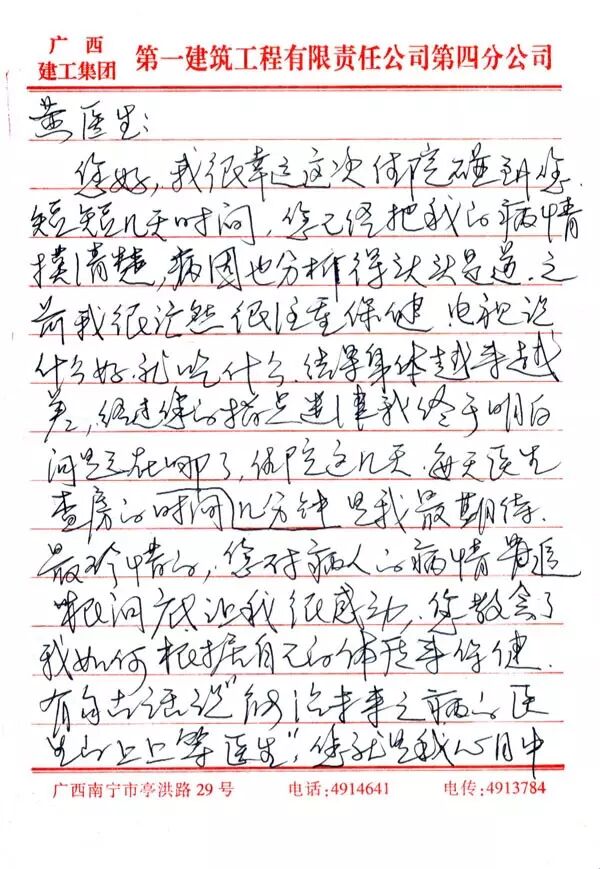 广西
建工集团 第一建筑工程有限责任公司第四分公司
黄医生:
您好,我很幸运这次住院碰到您.
短短几天时间,您已经把我的病情
摸清楚,病因也分析得头头是道.之
前我很茫然很注重保健.电视说
什么好.就吃什么.结果身体越来越
差,经过您的指点迷津我终于明白
问题在哪了,住院这几天.每天医生
查房的时间几分钟是我最期待.
最珍惜的,您对病人的病情寻追
根问底让我很感动,您教会了
我如何根据自己的体质来保健.
有句古话说"能治未来之病的医
生的上上等医生",您就是我心目中
广西南宁市亭洪路29号 电话:4914641 电传:4913784